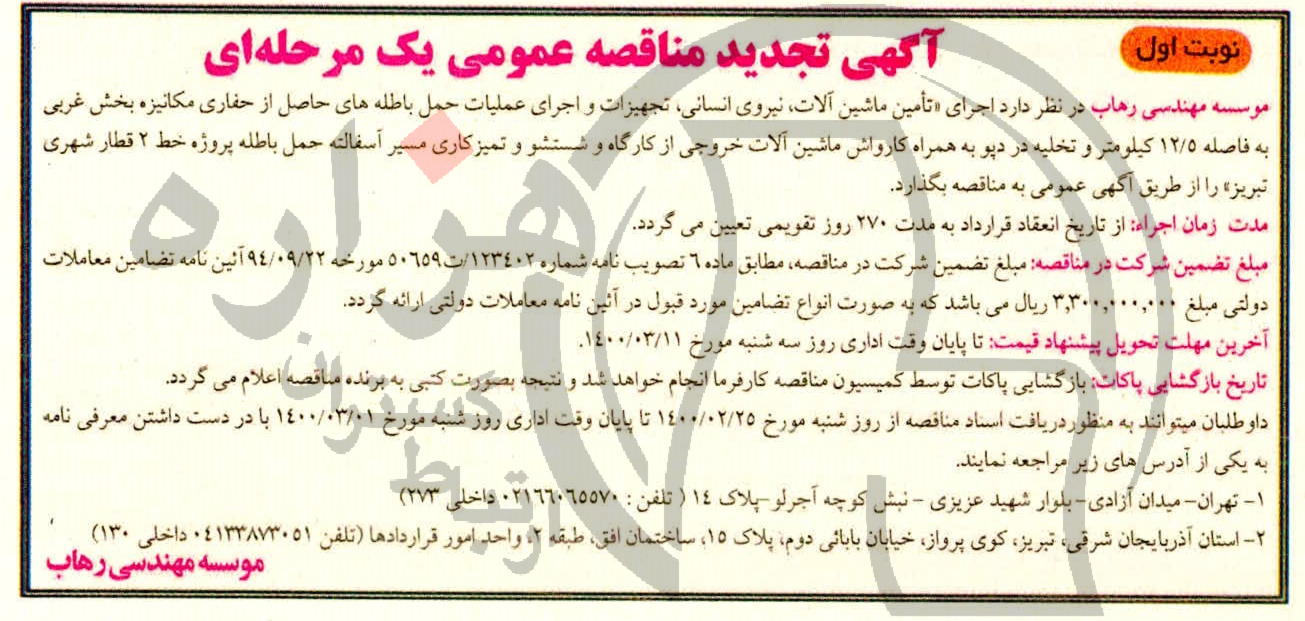 نوبت اول
آگهی تجدید مناقصه عمومی یک مرحله‌ای
موسسه مهندسی رهاب در نظر دارد اجرای «تأمین ماشین آلات، نیروی انسانی، تجهیزات و اجرای عملیات حمل باطله های حاصل از حفاری مکانیزه بخش غربی
به فاصله ۱۲/۵ کیلومتر و تخلیه در دپو به همراه کارواش ماشین آلات خروجی از کارگاه و شستشو و تمیزکاری مسیر آسفالته حمل باطله پروژه خط ۲ قطار شهری
تبریز» را از طریق آگهی عمومی به مناقصه بگذارد.
مدت زمان اجراء: از تاریخ انعقاد قرارداد به مدت ۲۷۰ روز تقویمی تعیین می گردد.
مبلغ تضمین شرکت در مناقصه: مبلغ تضمین شرکت در مناقصه، مطابق ماده ٦ تصویب نامه شماره ۱۲۳٤۰۲/ت۵۰٦۵۹ مورخه ۹٤/۰۹/۲۲ آئین نامه تضامین معاملات
دولتی مبلغ ۳,۳۰۰,۰۰۰,۰۰۰ ریال می باشد که به صورت انواع تضامین مورد قبول در آئین نامه معاملات دولتی ارائه گردد.
آخرین مهلت تحویل پیشنهاد قیمت: تا پایان وقت اداری روز سه شنبه مورخ ۱٤۰۰/۰۳/۱۱.
تاریخ بازگشایی پاکات: بازگشایی پاکات توسط کمیسیون مناقصه کارفرما انجام خواهد شد و نتیجه بصورت کتبی به برنده مناقصه اعلام می گردد.
داوطلبان میتوانند به منظور دریافت اسناد مناقصه از روز شنبه مورخ ۱٤۰۰/۰۲/۲۵ تا پایان وقت اداری روز شنبه مورخ ۱٤۰۰/۰۳/۰۱ با در دست داشتن معرفی نامه
به یکی از آدرس های زیر مراجعه نمایند.
۱- تهران- میدان آزادی- بلوار شهید عزیزی - نبش کوچه آجرلو- پلاک ۱٤ ( تلفن : ۰۲۱٦٦۰٦۵۵۷۰ داخلی ۲۷۳)
۲- استان آذربایجان شرقی، تبریز، کوی پرواز، خیابان بابائی دوم، پلاک ۱۵، ساختمان افق، طبقه ۲، واحد امور قراردادها (تلفن ۰٤۱۳۳۸۷۳۰۵۱ داخلی ۱۳۰)
موسسه مهندسی رهاب
هزاره
گستران
ارتباط